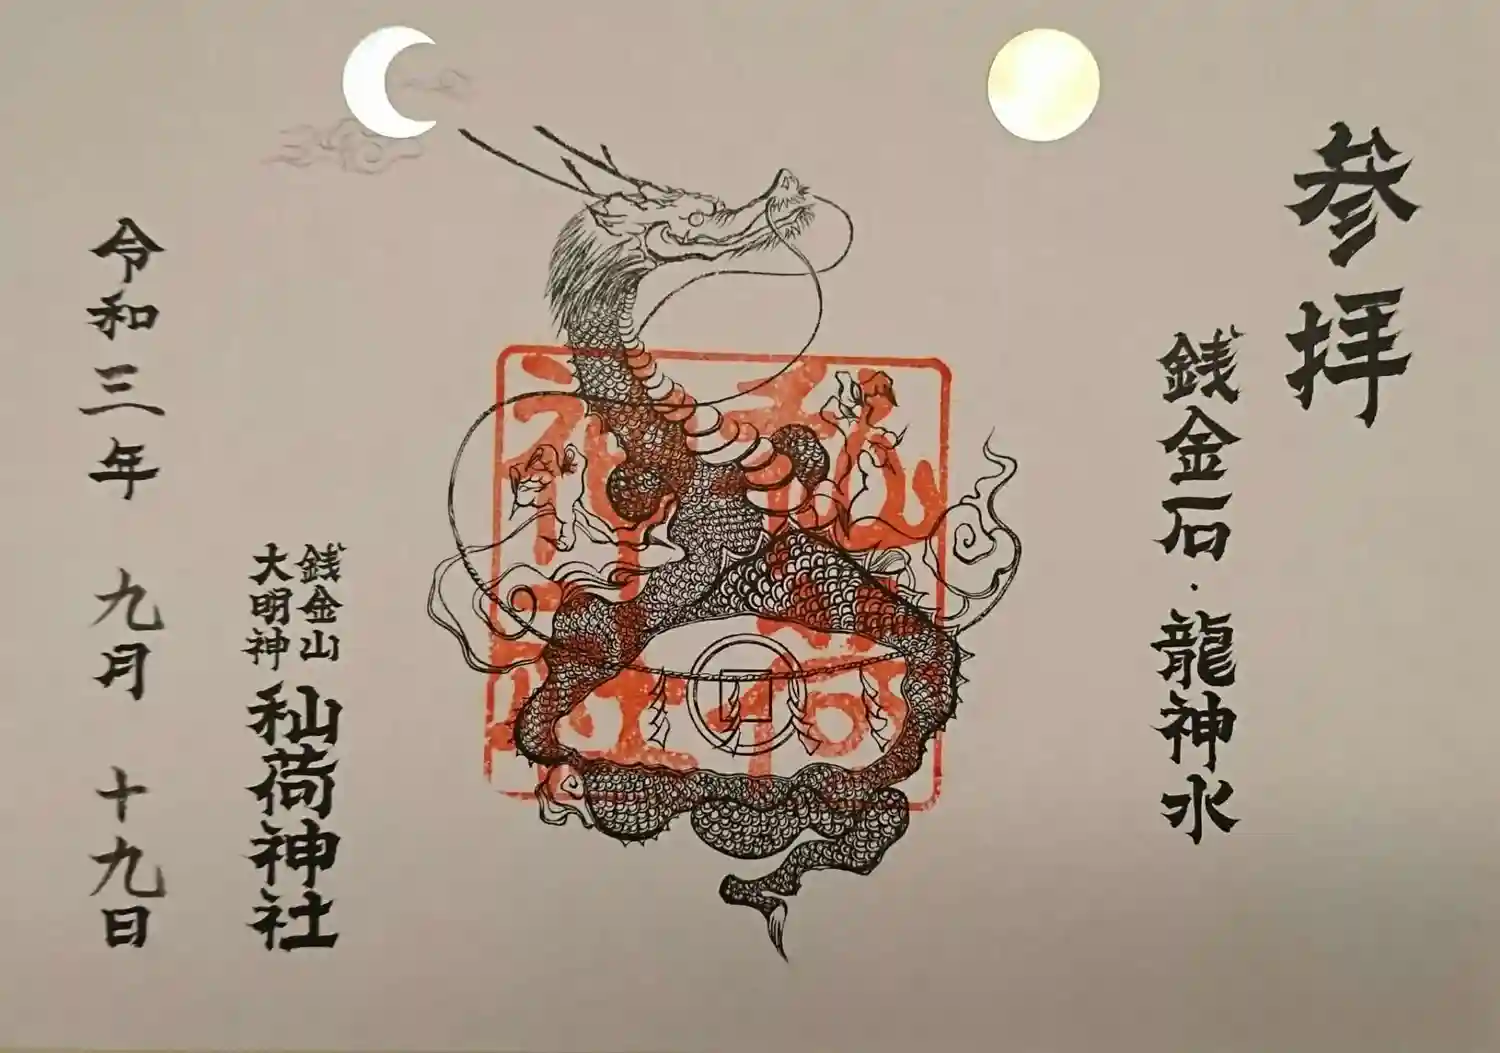 参拝
銭金石・龍神水
秈荷
神社
銭金山
大明神
秈荷神社
令和三年 九月 十九日